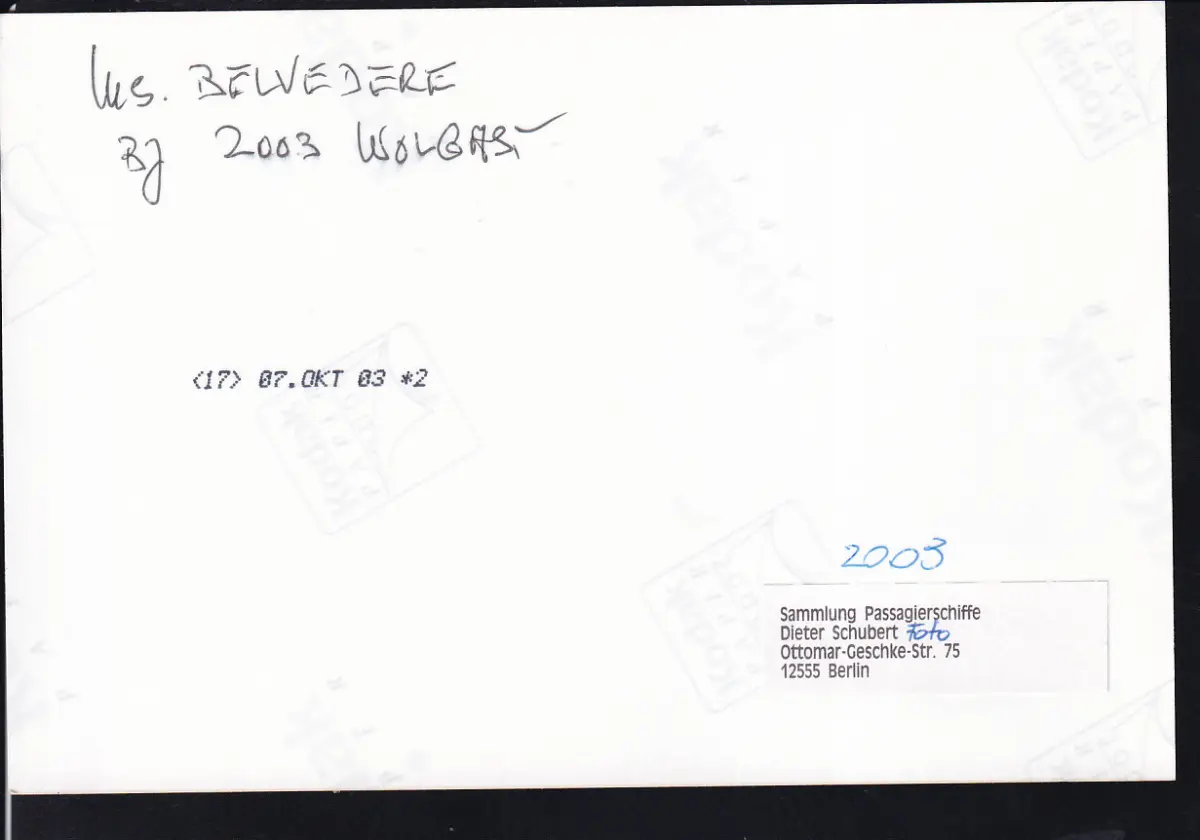 Ms. BELVEDERE
BJ 2003 WOLGAST
<17> 07.OKT 03 *2
2003
Sammlung Passagierschiffe
Dieter Schubert Foto
Ottomar-Geschke-Str. 75
12555 Berlin
Kodak
Kodak
Kodak
Kodak
Kodak